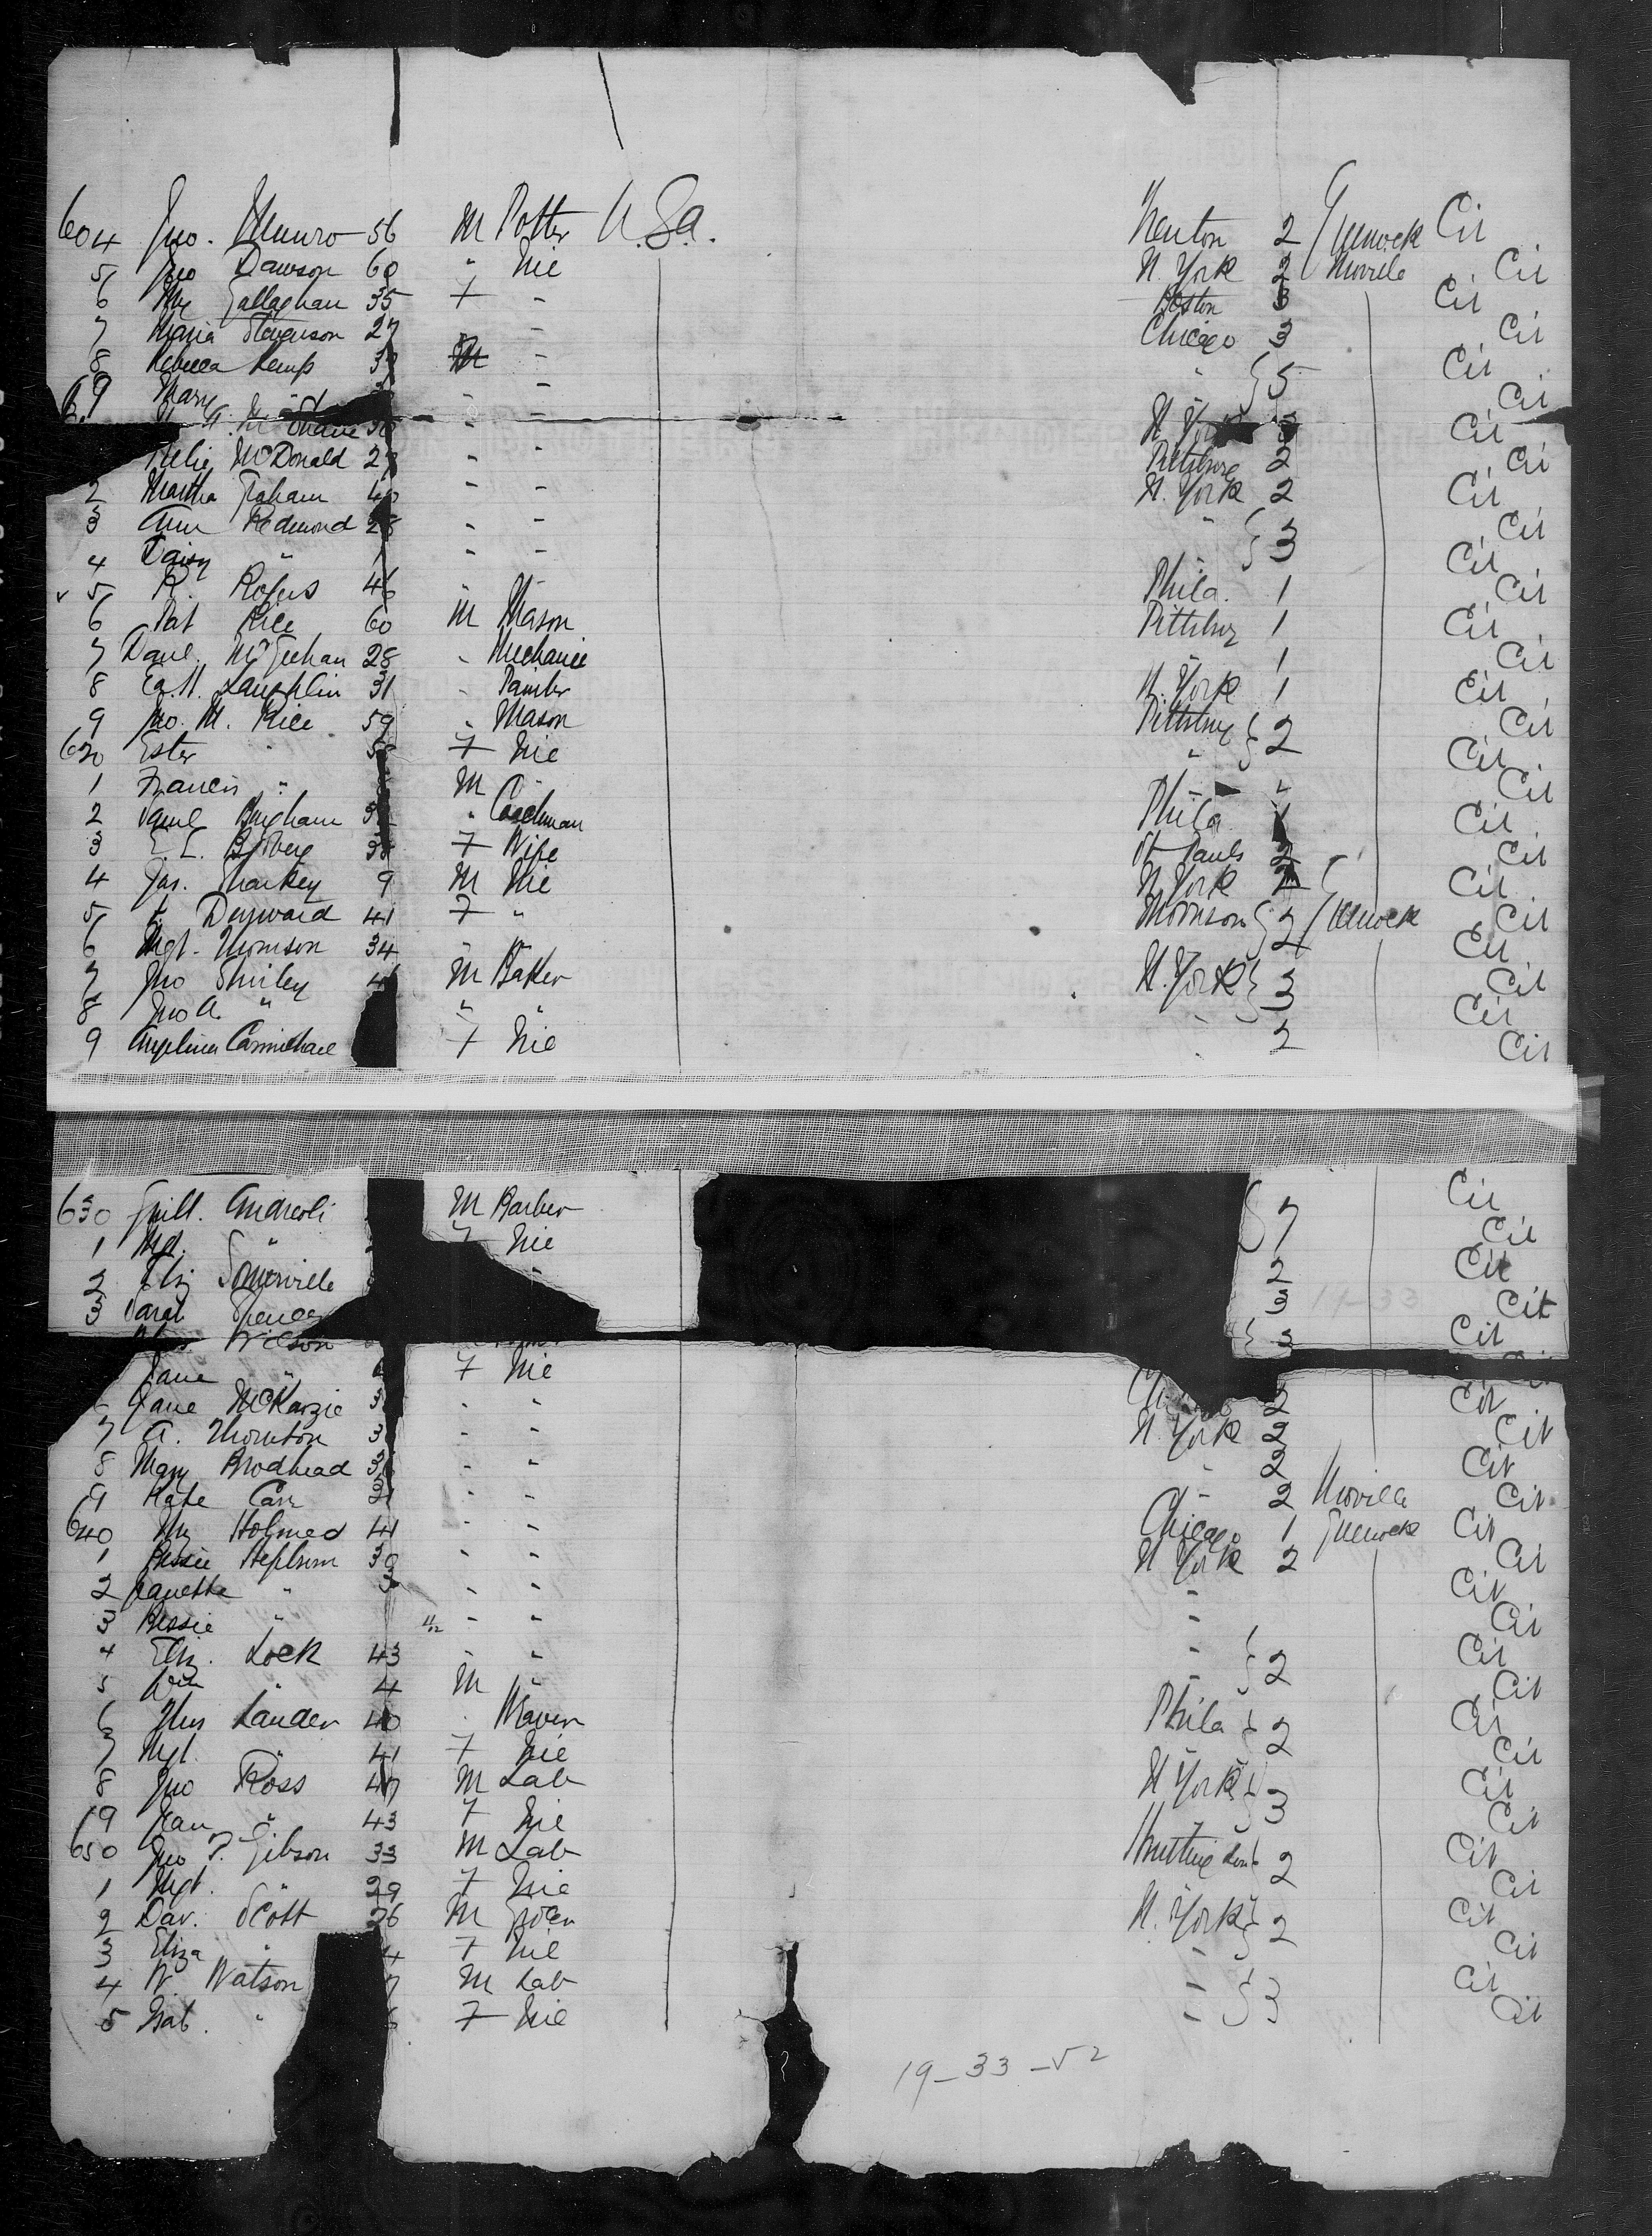 604 Jno. Munro 56 M Potter U.S.a. Trenton 2 Greenock Cit
5 Jno Dawson 60 " Nil N. York 2 Moville Cit
6 My Gallaghan 35 F " Boston 3 Cit
7 Maria Stevenson 27 " Chicago 3 Cit
8 Rebecca Kemp M " " 5 Cit
9 Mary " " " Cit
" " N. York Cit
McDonald " " Pittsburg 2 Cit
2 Martha Graham 40 " " N. York 2 Cit
3 Ann Redmond 28 " " " 3 Cit
4 Daisy " " " " Cit
5 R. Rogers 46 " " Phila. 1 Cit
6 Pat Rice 60 M Mason Pittsburg 1 Cit
7 Danl. McGeehan 28 " Mechanic " 1 Cit
8 Ed. H. Laughlin 31 " Painter N. York 1 Cit
9 Jno. M. Rice 59 " Mason Pittsburg 2 Cit
620 Ester " F Nil " Cit
1 Francis " M " " " Cit
2 Saml Bingham " Coachman Phila Cit
3 38 F Wife St Pauls 2 Cit
4 Jas. Sharkey 9 M Nil N. York Cit
5 Deyward 41 F " Morrison 2 Greenock Cit
6 Mgt. Thomson 34 " " " Cit
7 Jno Shirley M Baker N. York 3 Cit
8 Jno A. " " " " Cit
9 Angelina Carmichael F Nil " 2 Cit
630 Guill. Andreoli M Barber 7 Cit
1 Mgt. " F Nil Cit
2 Eliz Somerville " 2 Cit
3 Sarah Spencer 3 Cit
Wilson 3 Cit
Jane " F Nil
Jane McKanzie " " 2 Cit
7 A. Thornton " " N. York 2 Cit
8 Mary Brodhead 36 " " " 2 Cit
9 Kate Carr " " " 2 Moville Cit
640 My Holmes 41 " " Chicago 1 Greenock Cit
1 Bessie Hepburn 30 " " N York 2 Cit
2 Janette " 3 " " " Cit
3 Bessie " 11/12 " " " Cit
4 Eliz. Lock 43 " " " 2 Cit
5 Wm " 4 M " " Cit
6 Lauder 40 " Weaver Phila 2 Cit
7 Mgt. " 41 F Nil " Cit
8 Jno Ross 47 M Lab N York 3 Cit
9 Jean " 43 F Nil " Cit
650 Jno T. Gibson 33 M Lab 2 Cit
1 Mgt. " 29 F Nil " Cit
2 Dav. Scott 26 M Grocer N. York 2 Cit
3 Eliza " 4 F Nil " Cit
4 W. Watson 7 M Lab " 3 Cit
5 Isab. " F Nil " Cit
19-33-52